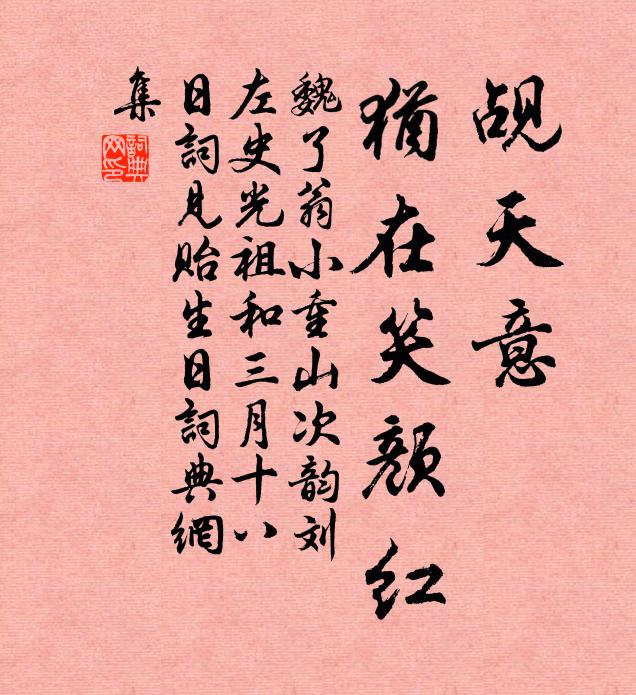 觇天意
犹在笑颜红
魏了翁小重山次韵刘
左史光祖和三月十八
日词见贻生日詞典網
集
詞典
网印